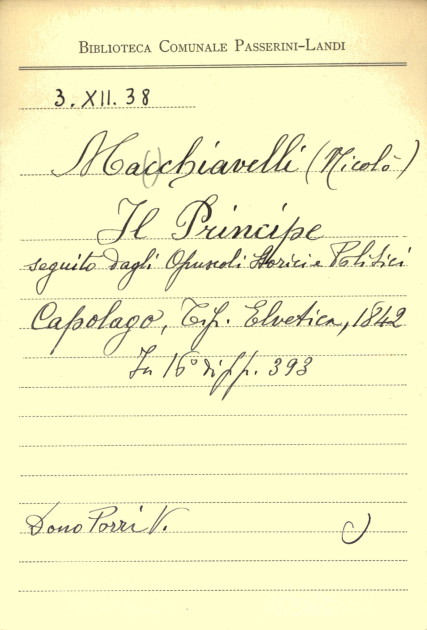 BIBLIOTECA COMUNALE PASSERINI-LANDI
3. XII. 38
Mac(c)hiavelli (Nicolò)
Il Principe
seguito dagli Opuscoli Storici e Politici
Capolago, Tip. Elvetica, 1842
In 16° di pp. 393
Dono Porri V.